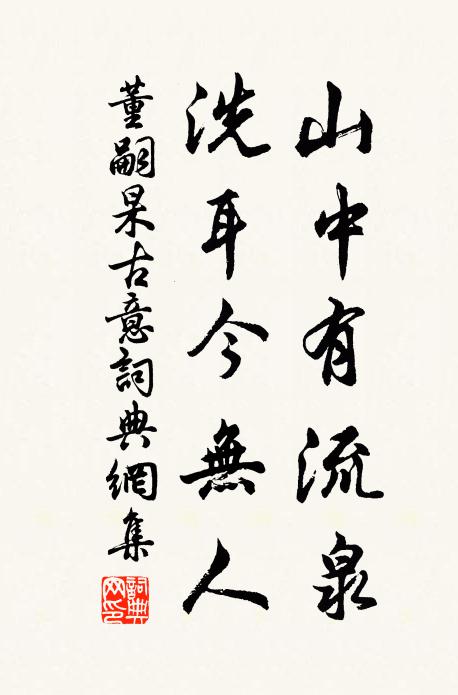 山中有流泉
洗耳今無人
董嗣杲古意詞典網集
詞典
网印